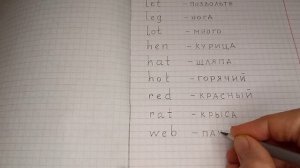 let - позвольте
leg - нога
lot - много
hen - КУРИЦА
hat - ШЛЯПА
hot - ГОРЯЧИЙ
red - КРАСНЫЙ
rat - КРЫСА
web - ПАУ